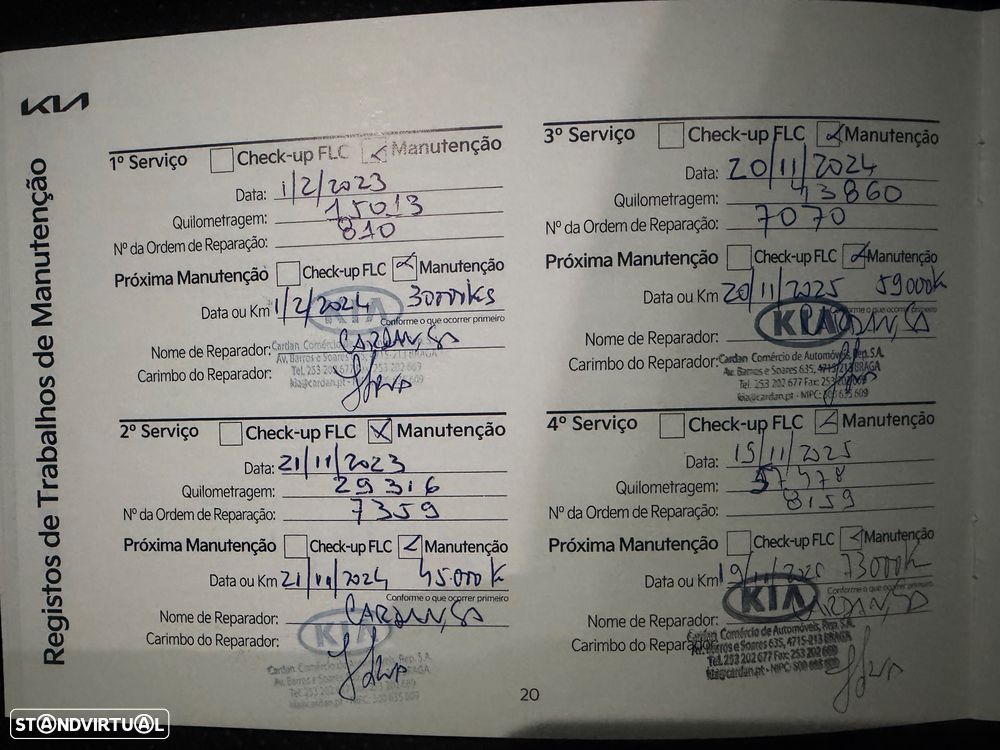 KIA
Registos de Trabalhos de Manutenção
1º Serviço Check-up FLC Manutenção
Data: 1/2/2023
Quilometragem: 15013
Nº da Ordem de Reparação: 810
Próxima Manutenção Check-up FLC Manutenção
Data ou Km 1/2/2024 30000ks
Conforme o que ocorrer primeiro
Nome de Reparador: CARDAN, SA
Carimbo do Reparador:
KIA
Cardan Comércio
Av. Barros e Soares 4715-213 BRAGA
Tel. 253 202 677
kia@cardan.pt
2º Serviço Check-up FLC Manutenção
Data: 21/11/2023
Quilometragem: 29316
Nº da Ordem de Reparação: 7359
Próxima Manutenção Check-up FLC Manutenção
Data ou Km 21/11/2024 45000K
Conforme o que ocorrer primeiro
Nome do Reparador: CARDAN, SA
Carimbo do Reparador:
KIA
Cardan Comércio de Automóveis, Rep. S.A.
Av. Barros e Soares BRAGA
Tel. 253 202 677
kia@cardan.pt - NIPC: 500 635 609
3º Serviço Check-up FLC Manutenção
Data: 20/11/2024
Quilometragem: 43860
Nº da Ordem de Reparação: 7070
Próxima Manutenção Check-up FLC Manutenção
Data ou Km 20/11/2025 59000K
Conforme o que ocorrer primeiro
Nome do Reparador: CARDAN, SA
Carimbo do Reparador:
KIA
Cardan Comércio de Automóveis, Rep. S.A.
Av. Barros e Soares 635, 4715-213 BRAGA
Tel. 253 202 677 Fax: 253 202 669
kia@cardan.pt - NIPC: 500 635 609
4º Serviço Check-up FLC Manutenção
Data: 19/11/2025
Quilometragem: 57478
Nº da Ordem de Reparação: 8159
Próxima Manutenção Check-up FLC Manutenção
Data ou Km 19/11/2025 73000K
Conforme o que ocorrer primeiro
Nome do Reparador: CARDAN, SA
Carimbo do Reparador:
KIA
Cardan Comércio de Automóveis, Rep. S.A.
Av. Barros e Soares 635, 4715-213 BRAGA
Tel. 253 202 677 Fax: 253 202 669
kia@cardan.pt - NIPC: 500 635 609
20
STANDVIRTUAL